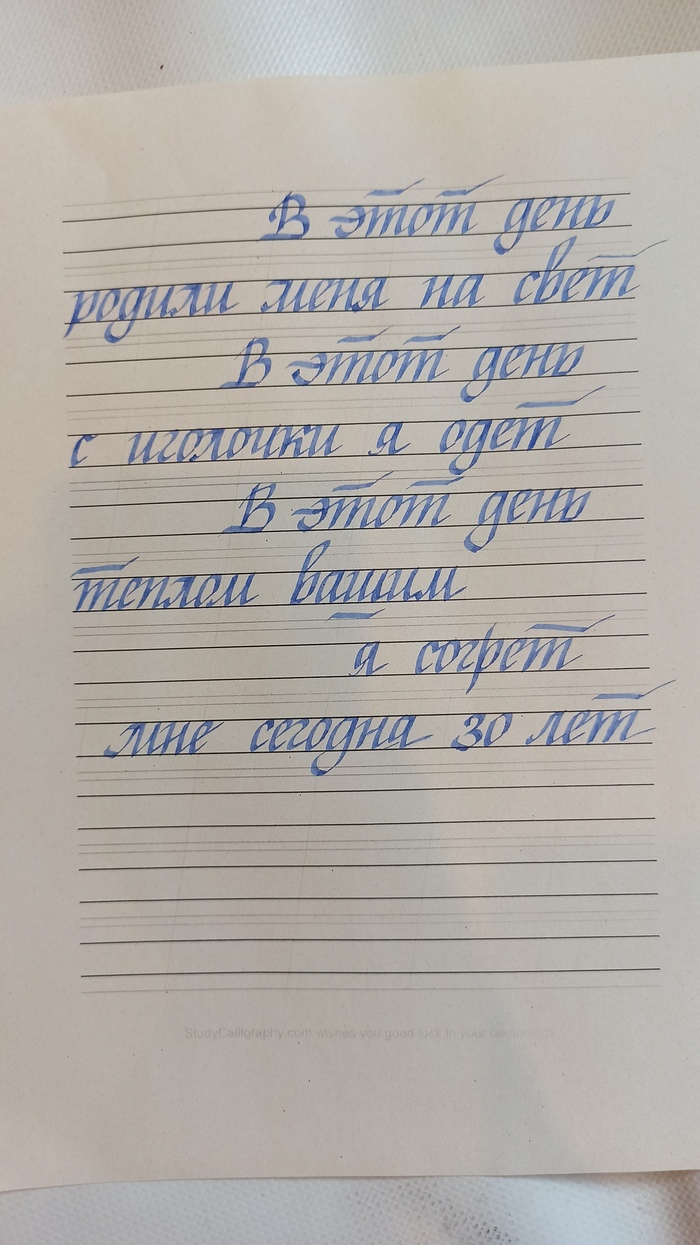 В этот день
родили меня на свет
В этот день
с иголочки я одет
В этот день
теплом вашим
я согрет
мне сегодна 30 лет
StudyCalligraphy.com wishes you good luck in your beginnings